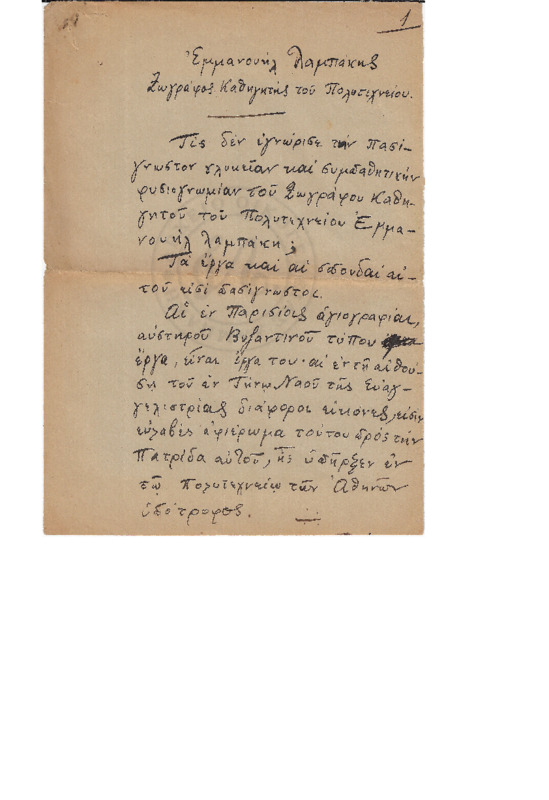 1
Ἐμμανουήλ Λαμπάκης
Ζωγράφος Καθηγητής τοῦ Πολυτεχνείου.
Τίς δέν ἐγνώρισε τήν πασί-
γνωστον γλυκεῖαν καί συμπαθητικήν
φυσιογνωμίαν τοῦ Ζωγράφου Καθη-
γητοῦ τοῦ Πολυτεχνείου Ἐμμα-
νουήλ Λαμπάκη;
Τά ἔργα καί αἱ σπουδαί αὐ-
τοῦ εἰσί πασίγνωστοι.
Αἱ ἐν Παρισίοις ἁγιογραφίαι,
αὐστηροῦ Βυζαντινοῦ τύπου
ἔργα, εἶναι ἔργα του· αἱ ἐν τῇ αἰθού-
σῃ τοῦ ἐν Τήνῳ Ναοῦ τῆς Εὐαγ-
γελιστρίας διάφοροι εἰκόνες, εἰσίν
εὐλαβές ἀφιέρωμα τούτου πρός τήν
Πατρίδα αὐτοῦ, ἧς ὑπῆρξεν ἐν
τῷ Πολυτεχνείῳ τῶν Ἀθηνῶν
ὑπότροφος.